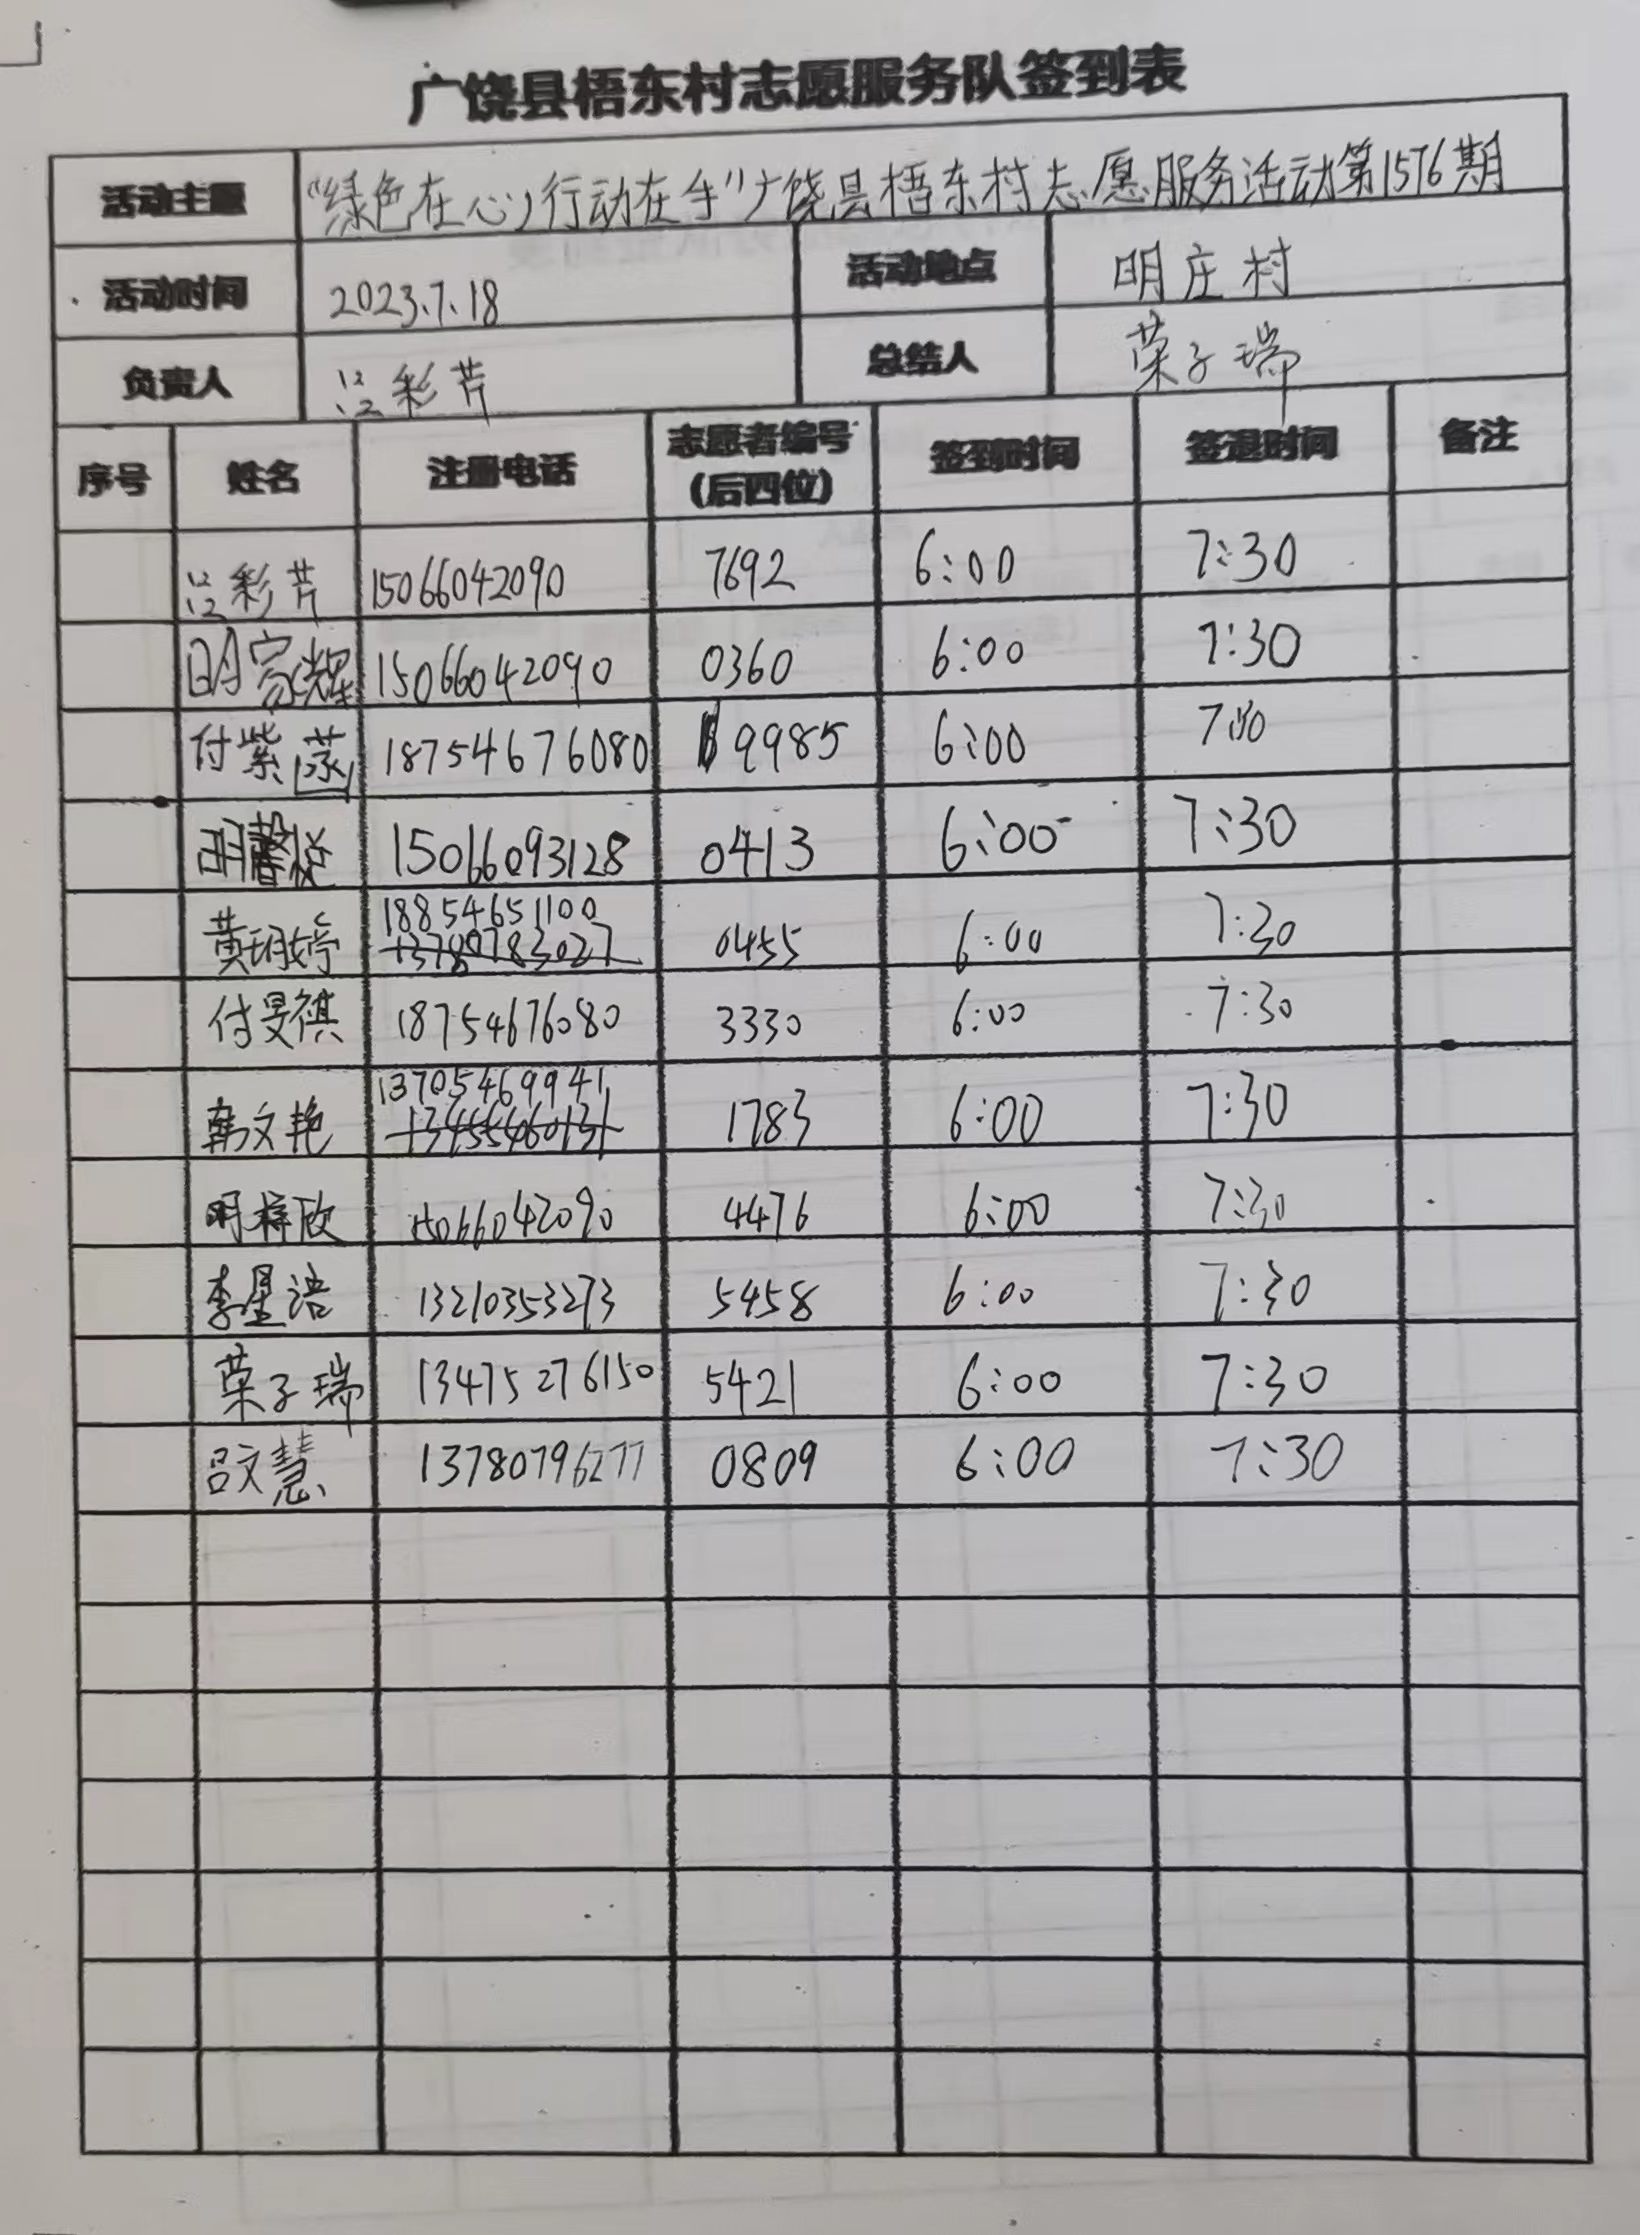 广饶县梧东村志愿服务队签到表
活动主题 “绿色在心，行动在手”广饶县梧东村志愿服务活动第1576期
活动时间 2023.7.18 活动地点 明庄村
负责人 吕彩芹 总结人 荣子瑞
序号 姓名 注册电话 志愿者编号（后四位） 签到时间 签退时间 备注
吕彩芹 15066042090 7692 6:00 7:30
明家辉 15066042090 0360 6:00 7:30
付紫菡 18754676080 9985 6:00 7:30
明馨悦 15066093128 0413 6:00 7:30
黄玥婷 18854651100 0455 6:00 7:30
13780783027
付旻祺 18754676080 3330 6:00 7:30
韩文艳 13705469941 1783 6:00 7:30
明梓欣 15066042090 4476 6:00 7:30
李星浩 13210353273 5458 6:00 7:30
荣子瑞 13475276150 5421 6:00 7:30
吕文慧 13780796277 0809 6:00 7:30